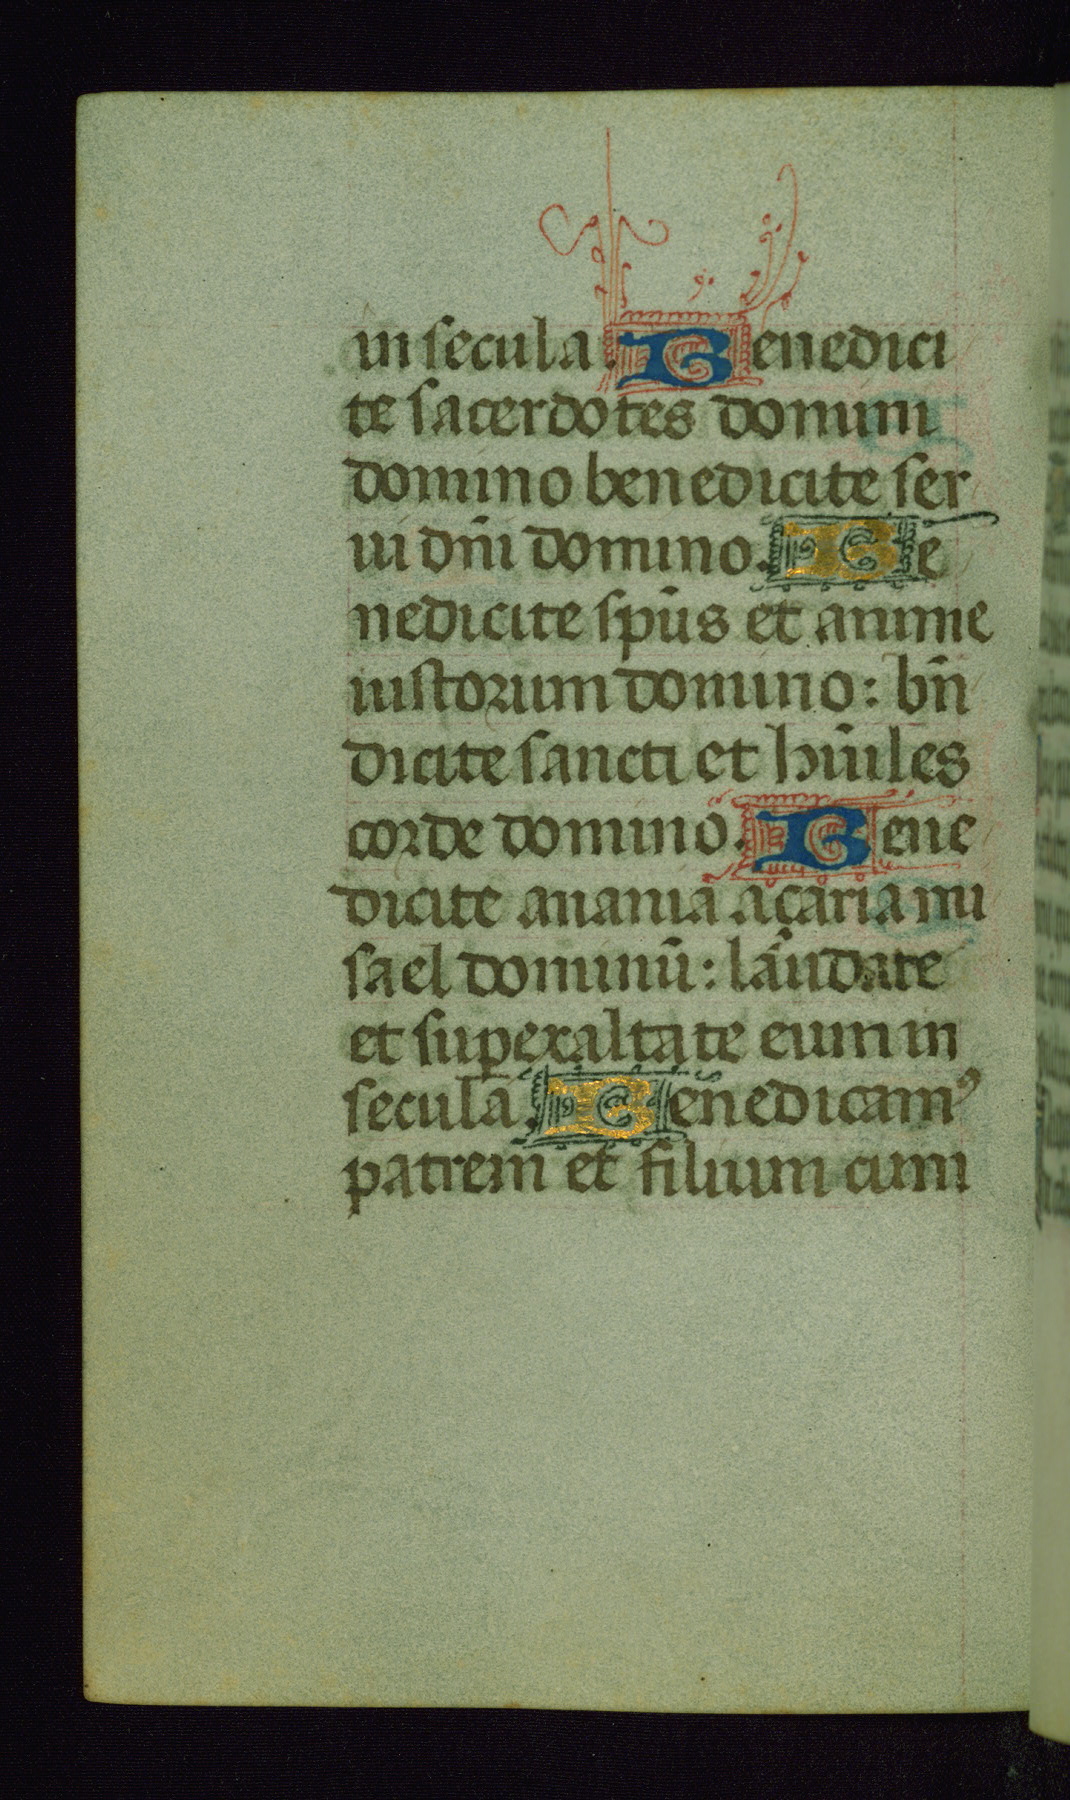 in secula. Benedici
te sacerdotes domini
domino benedicite ser
ui dñi domino. Be
nedicite spũs et anime
iustorum domino: bñ
dicite sancti et hũiles
corde domino. Bene
dicite anania açaria mi
sael dominũ: laudate
et suꝑexaltate eum in
secula. Benedicamꝰ
patrem et filium cum